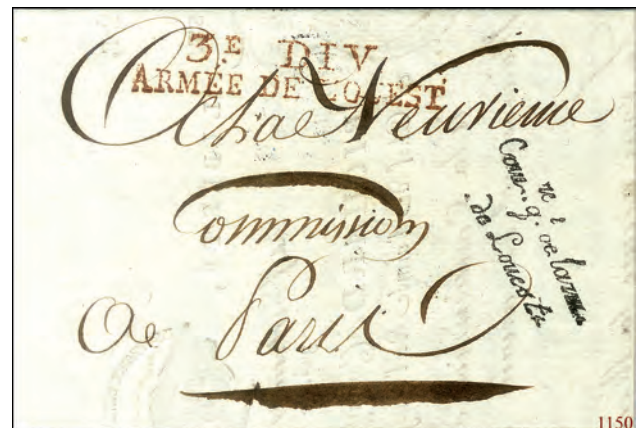 3E DIV
ARMÉE DE L'OUEST
A La Neuvieme
Commission
A Paris
de Louest
1150